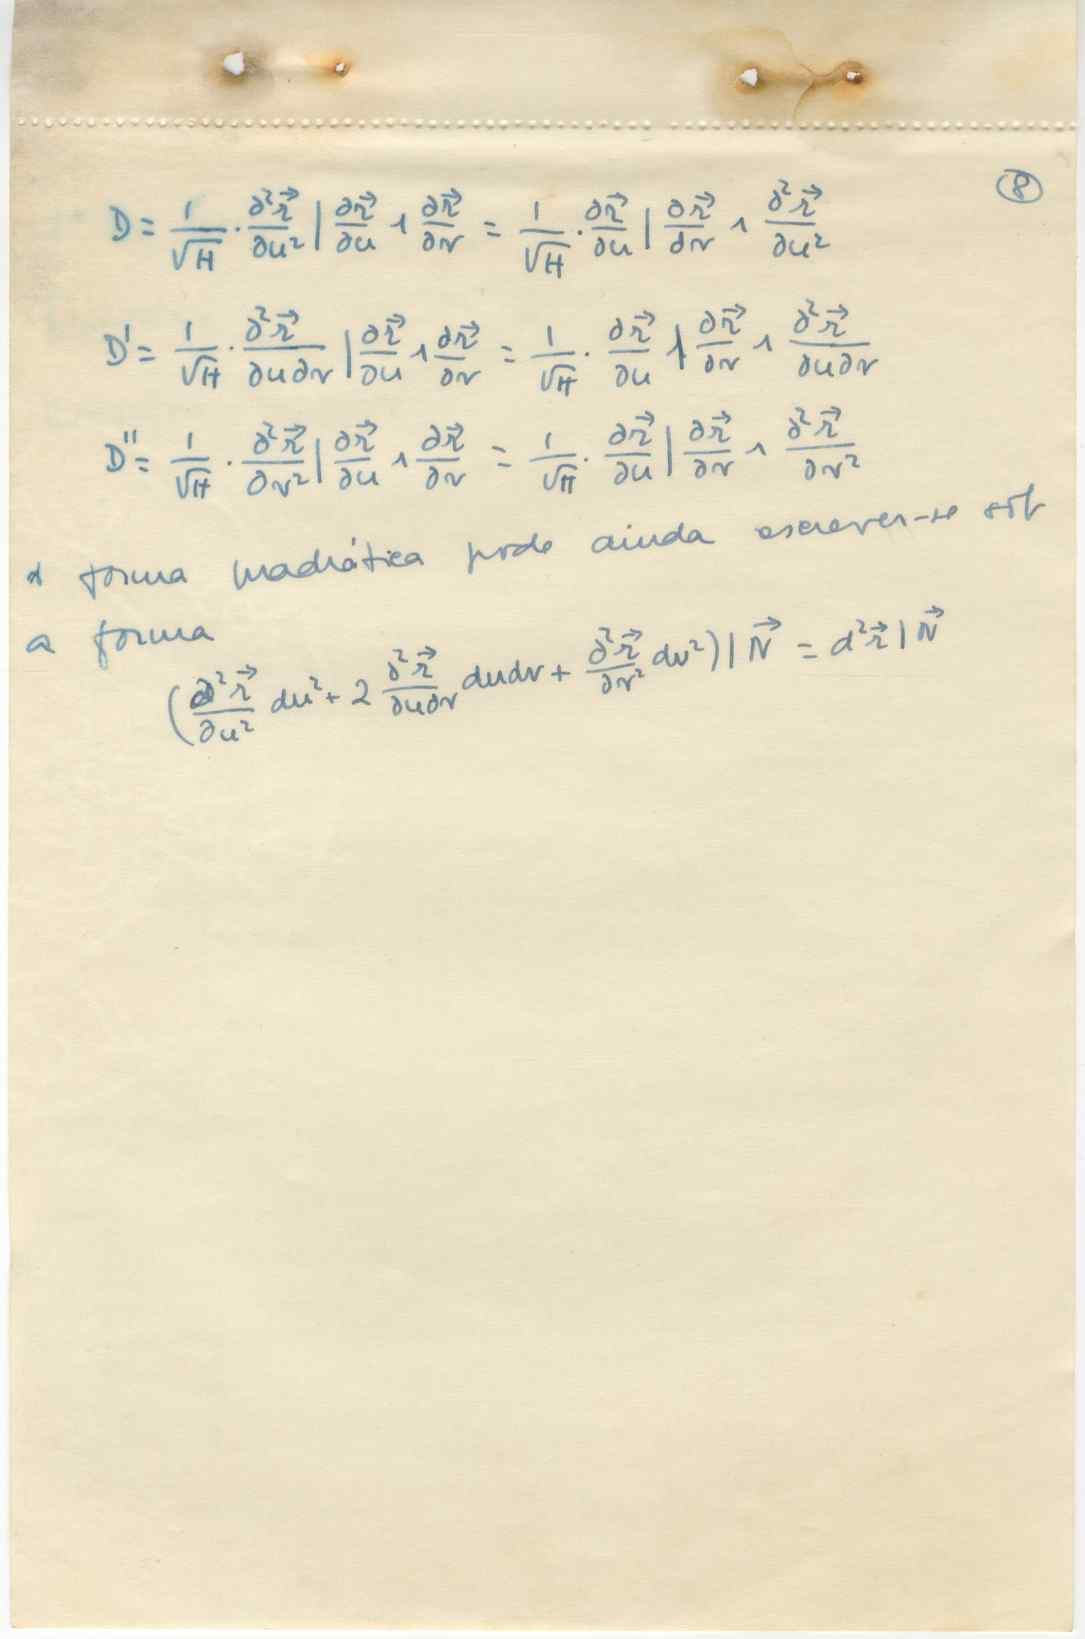 8
D = 1/√H · ∂²r⃗/∂u² | ∂r⃗/∂u ∧ ∂r⃗/∂v = 1/√H · ∂r⃗/∂u | ∂r⃗/dv ∧ ∂²r⃗/∂u²
D' = 1/√H · ∂²r⃗/∂u∂v | ∂r⃗/∂u ∧ ∂r⃗/∂v = 1/√H · ∂r⃗/∂u | ∂r⃗/∂v ∧ ∂²r⃗/∂u∂v
D'' = 1/√H · ∂²r⃗/∂v² | ∂r⃗/∂u ∧ ∂r⃗/∂v = 1/√H · ∂r⃗/∂u | ∂r⃗/∂v ∧ ∂²r⃗/∂v²
A forma quadrática pode ainda escrever-se sob
a forma
(∂²r⃗/∂u² du² + 2 ∂²r⃗/∂u∂v dudv + ∂²r⃗/∂v² dv²) | N⃗ = d²r⃗ | N⃗